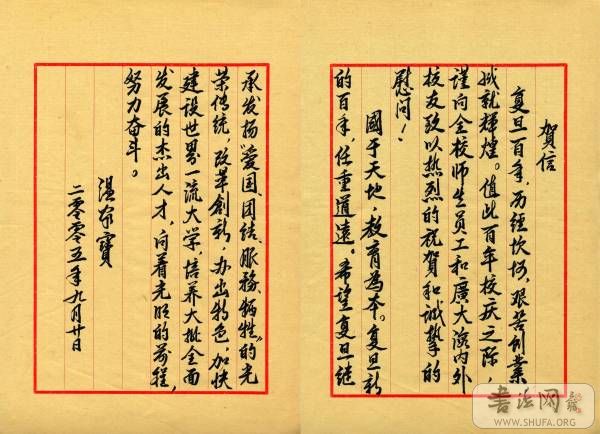 賀信
复旦百年，历经坎坷，艰苦创業
成就輝煌。值此百年校庆之际
谨向全校师生员工和廣大海内外
校友致以热烈的祝贺和诚挚的
慰问！
國于天地，教育為本。复旦新
的百年，任重道遠。希望复旦继
承发扬“爱国、团结、服務、犧牲”的光
荣传统，改革創新，办出特色，加快
建设世界一流大学，培养大批全面
发展的杰出人才，向着光明的前程，
努力奋斗。
温家寶
二零零五年九月廿日
书法网
WWW.SHUFA.ORG